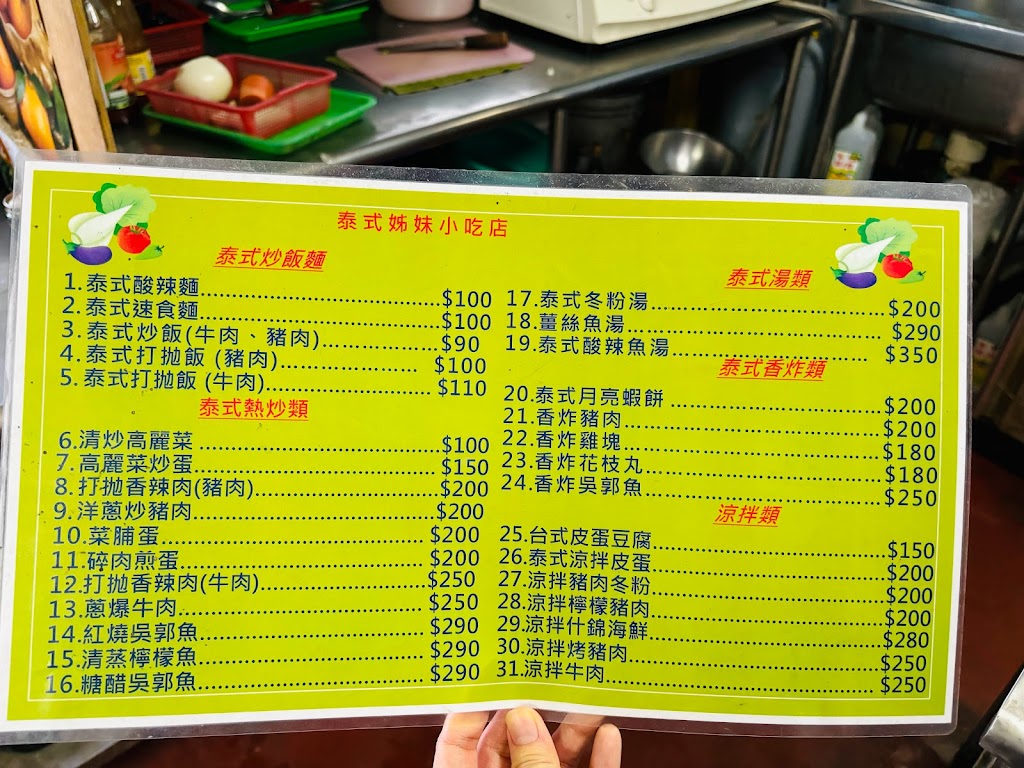 泰式姊妹小吃店
泰式炒飯麵
1.泰式酸辣麵........................$100
2.泰式速食麵........................$100
3.泰式炒飯(牛肉、豬肉)............$90
4.泰式打拋飯 (豬肉)................$100
5.泰式打拋飯 (牛肉)................$110
泰式熱炒類
6.清炒高麗菜........................$100
7.高麗菜炒蛋........................$150
8.打拋香辣肉(豬肉)..................$200
9.洋蔥炒豬肉........................$200
10.菜脯蛋............................$200
11.碎肉煎蛋..........................$200
12.打拋香辣肉(牛肉)..................$250
13.蔥爆牛肉..........................$250
14.紅燒吳郭魚........................$290
15.清蒸檸檬魚........................$290
16.糖醋吳郭魚........................$290
泰式湯類
17.泰式冬粉湯........................$200
18.薑絲魚湯..........................$290
19.泰式酸辣魚湯......................$350
泰式香炸類
20.泰式月亮蝦餅......................$200
21.香炸豬肉..........................$200
22.香炸雞塊..........................$180
23.香炸花枝丸........................$180
24.香炸吳郭魚........................$250
涼拌類
25.台式皮蛋豆腐......................$150
26.泰式涼拌皮蛋......................$200
27.涼拌豬肉冬粉......................$200
28.涼拌檸檬豬肉......................$200
29.涼拌什錦海鮮......................$280
30.涼拌烤豬肉........................$250
31.涼拌牛肉..........................$250